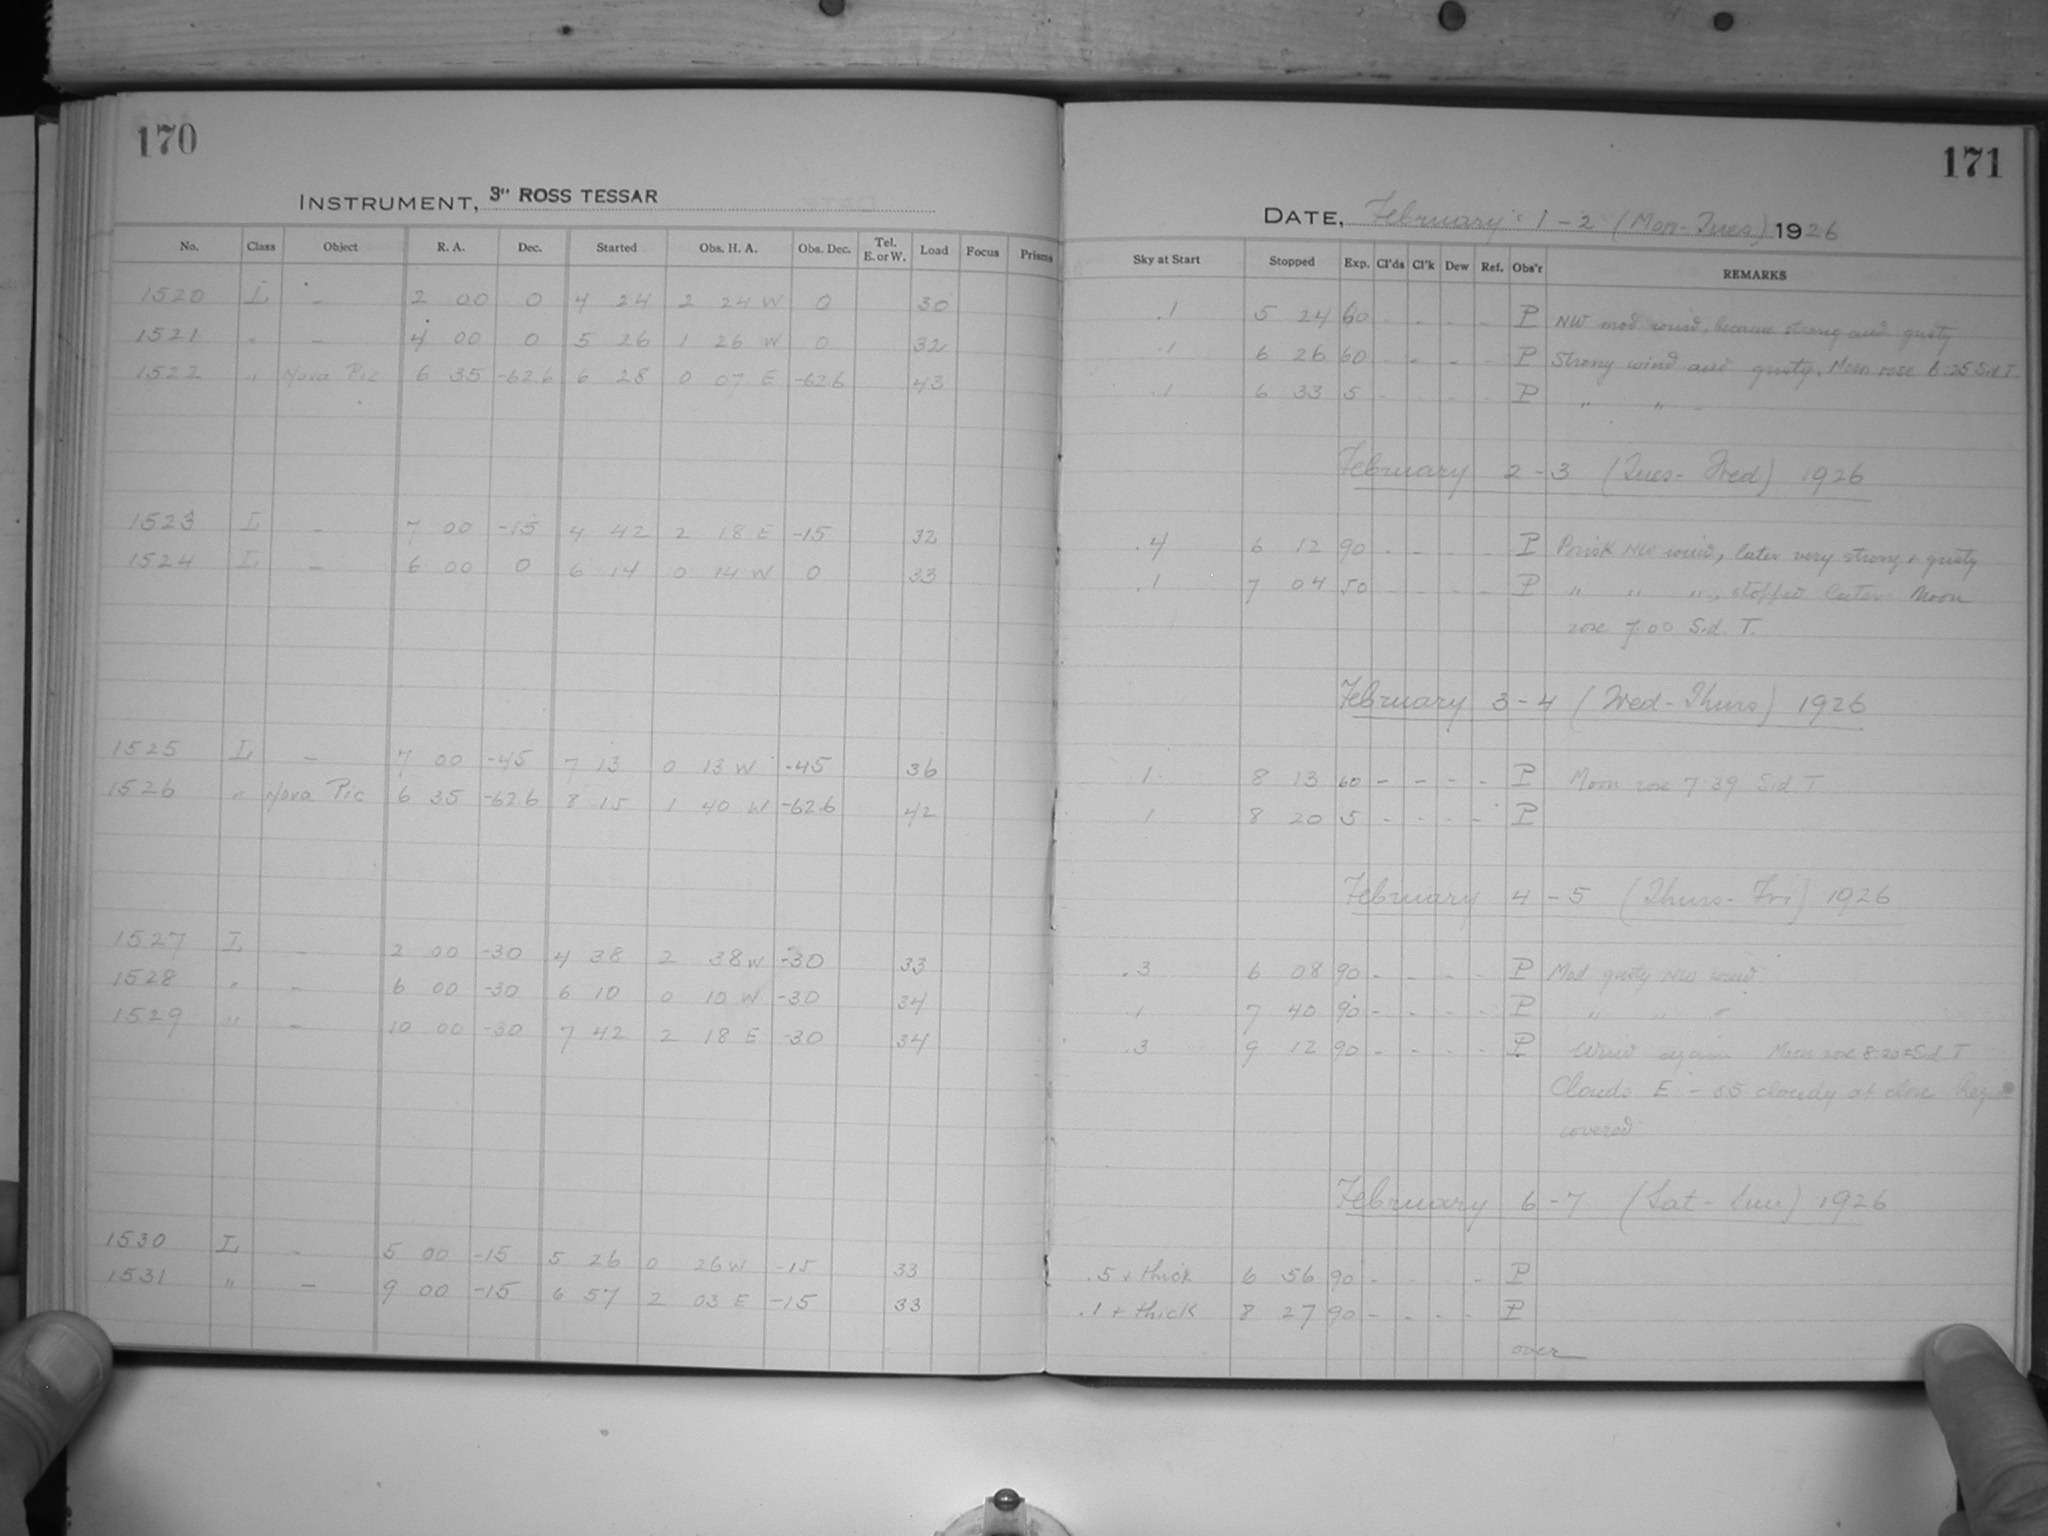 170
INSTRUMENT, 3" ROSS TESSAR
No. Class Object R. A. Dec. Started Obs. H. A. Obs. Dec. Tel. E. or W. Load Focus Prisms
1520 L - 2 00 0 4 24 2 24 W 0 30
1521 " - 4 00 0 5 26 1 26 W 0 32
1522 " Nova Pic 6 35 -62.6 6 28 0 07 E -62.6 43
1523 L - 7 00 -15 4 42 2 18 E -15 32
1524 L - 6 00 0 6 14 0 14 W 0 33
1525 L - 7 00 -45 7 13 0 13 W -45 36
1526 " Nova Pic 6 35 -62.6 8 15 1 40 W -62.6 42
1527 L - 2 00 -30 4 38 2 38 W -30 33
1528 " - 6 00 -30 6 10 0 10 W -30 34
1529 " - 10 00 -30 7 42 2 18 E -30 34
1530 L - 5 00 -15 5 26 0 26 W -15 33
1531 " - 9 00 -15 6 57 2 03 E -15 33
171
DATE, February 1-2 (Mon-Tues) 1926
Sky at Start Stopped Exp. Cl'ds Cl'k Dew Ref. Obs'r REMARKS
.1 5 24 60 - - - - P NW mod wind, became strong and gusty
.1 6 26 60 - - - - P Strong wind and gusty. Moon rose 6:25 Sid T.
.1 6 33 5 - - - - P " " -
February 2-3 (Tues-Wed) 1926
.4 6 12 90 - - - - P Brisk NW wind, later very strong + gusty
.1 7 04 50 - - - - P " " ", stopped later. Moon
rose 7:00 Sid. T.
February 3-4 (Wed-Thurs) 1926
1 8 13 60 - - - - P Moon rose 7:39 Sid. T.
1 8 20 5 - - - - P
February 4-5 (Thurs-Fri) 1926
.3 6 08 90 - - - - P Mod gusty NW wind
.1 7 40 90 - - - - P " " "
.3 9 12 90 - - - - P Wind again Moon rose 8:20± Sid T
Clouds E - 05 cloudy at close
covered
February 6-7 (Sat-Sun) 1926
.5 + thick 6 56 90 - - - - P
.1 + thick 8 27 90 - - - - P
over